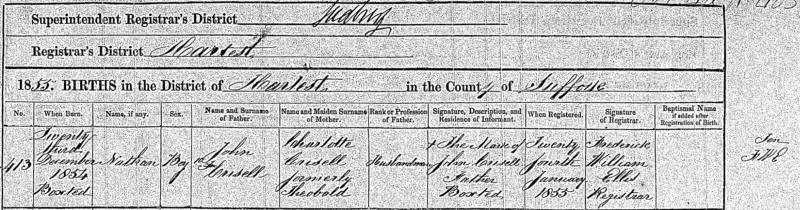 Superintendent Registrar's District Sudbury
Registrar's District Hartest
1855. BIRTHS in the District of Hartest in the County of Suffolk
No. When Born. Name, if any. Sex. Name and Surname of Father. Name and Maiden Surname of Mother. Rank or Profession of Father. Signature, Description, and Residence of Informant. When Registered. Signature of Registrar. Baptismal Name if added after Registration of Birth.
413 Twenty third December 1854 Boxted Nathan Boy John Crisell Charlotte Crisell formerly Theobald Husbandman + The Mark of John Crisell Father Boxted Twenty fourth January 1855 Frederick William Ellis Registrar
Ten
FWE